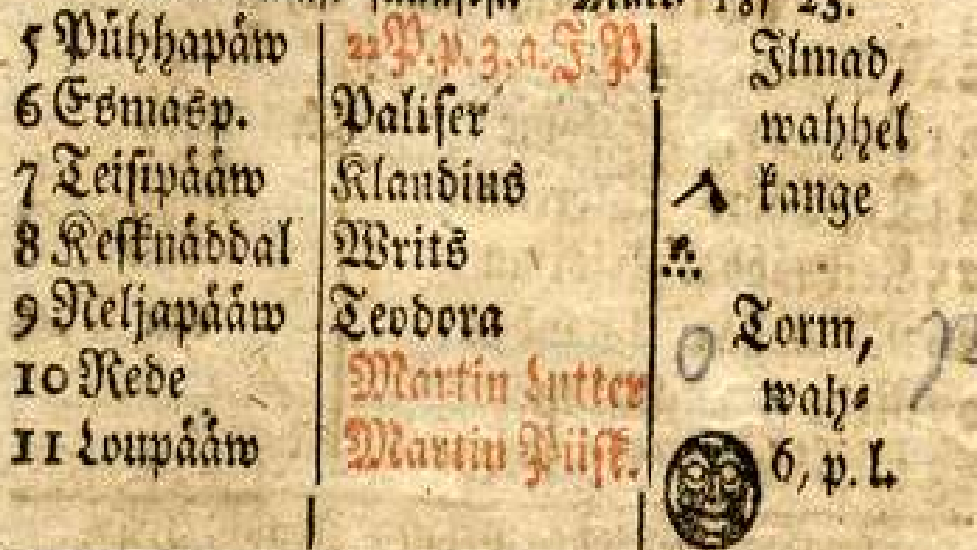 Matt. 18, 23.
5 Pühhapäw 22 P. p. 3. a. J P. Ilmad,
6 Esmasp. Paliser wahhel
7 Teisipääw Klaudius kange
8 Kesknäddal Writs
9 Neljapääw Teodora Torm,
10 Rede Martin Lutter wah⸗
11 Loupääw Martin Piisk. 6, p. l.